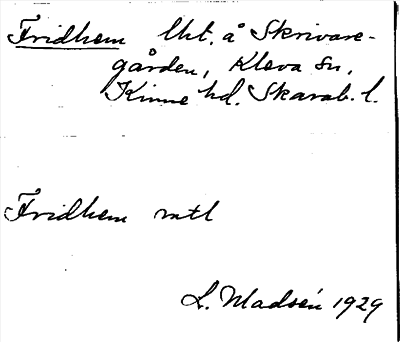 Fridhem lht. å Skrivare-
gården, Kleva sn,
Kinne hd. Skarab. l.
Fridhem mtl
L. Madsén 1929